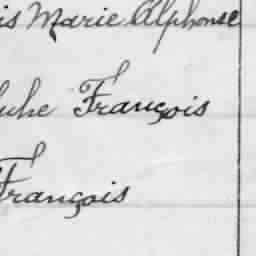 Marie Alphonse
François
François